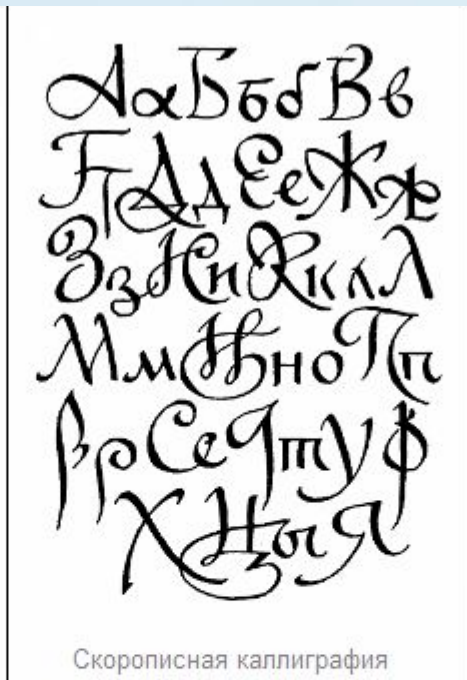 АаБббВв
ГтДдЕеЖж
ЗзИиКклЛ
МмНноПп
РрСсЧтУф
ХЦыЯ
Скорописная каллиграфия